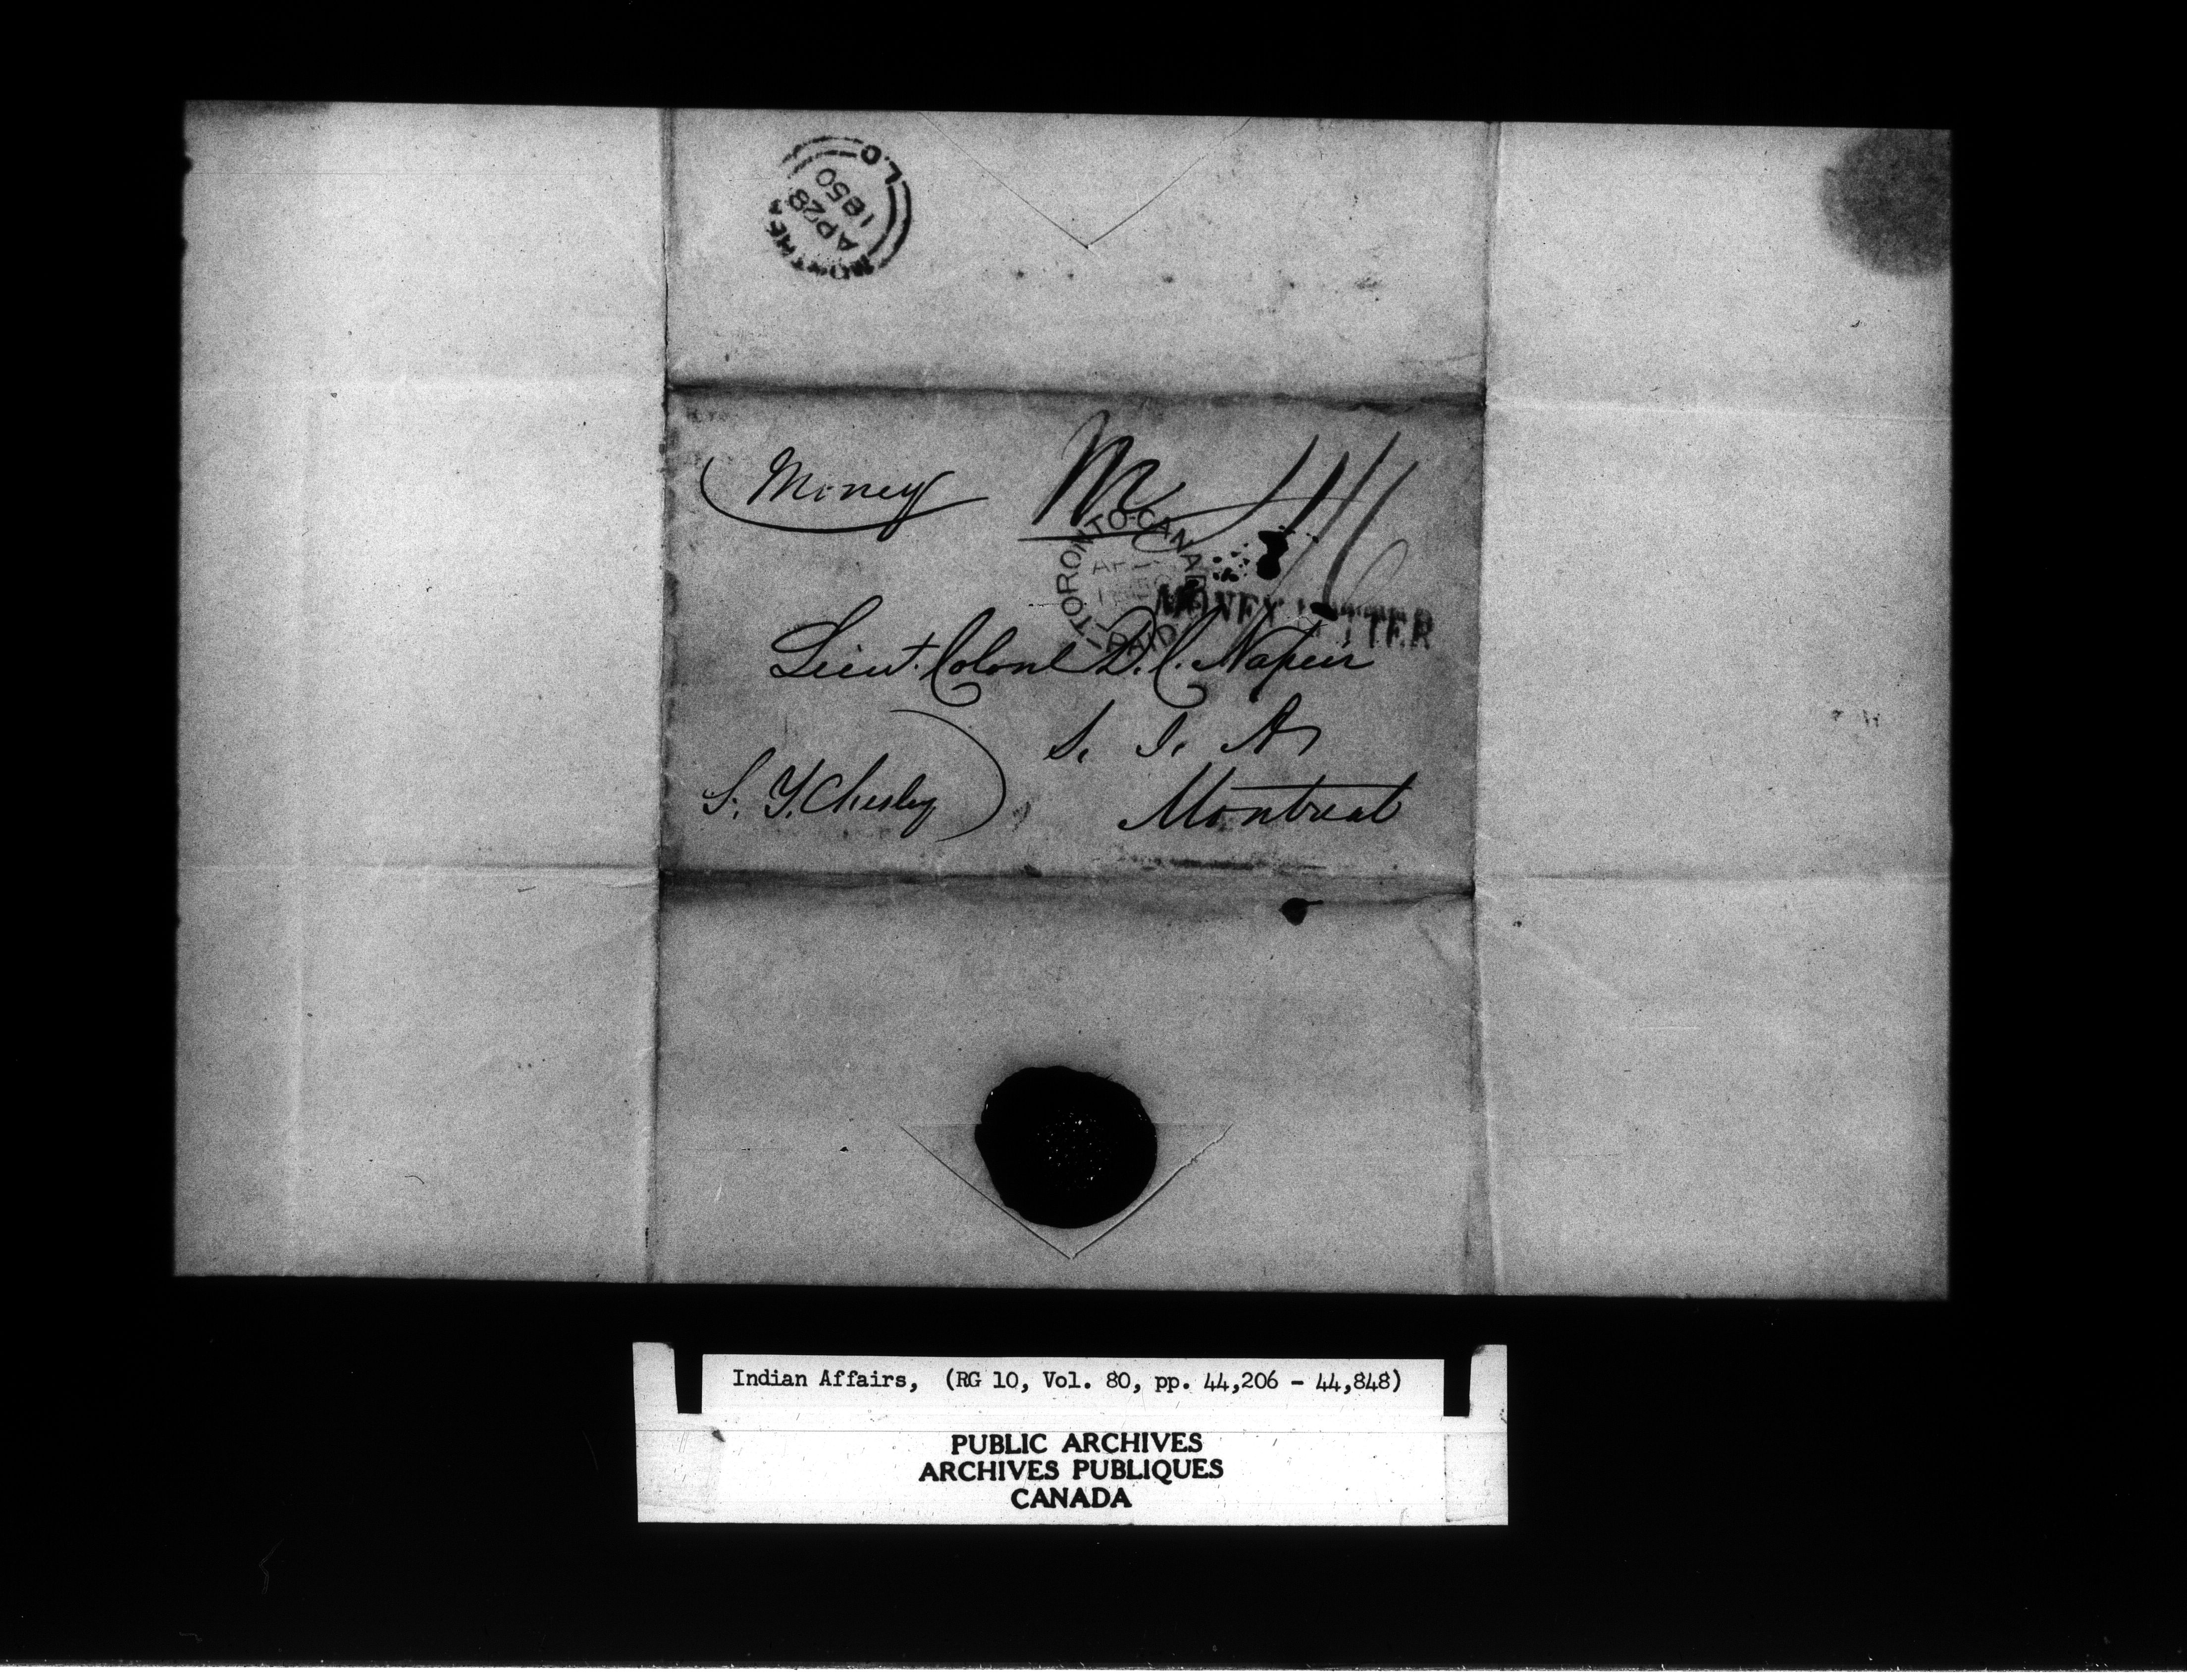 MONTREAL L.C
AP 28
1850
Money
M
TORONTO-CANADA
PAID
MONEY LETTER
Lieut. Colonel D. C. Napier
S. I. A
Montreal
S. Y. Chesley
Indian Affairs, (RG 10, Vol. 80, pp. 44,206 - 44,848)
PUBLIC ARCHIVES
ARCHIVES PUBLIQUES
CANADA